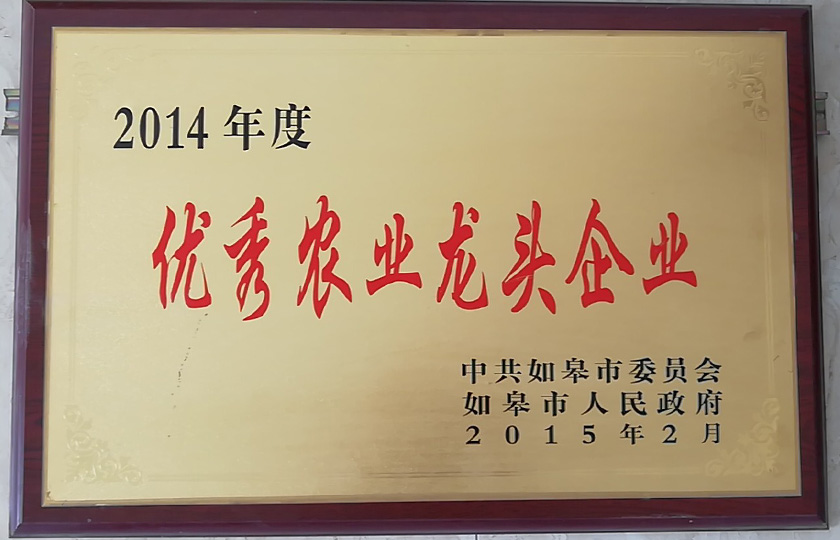 2014年度
优秀农业龙头企业
中共如皋市委员会
如皋市人民政府
2015年2月